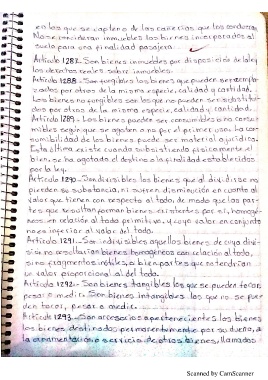 en los que se capten o de las cañerias que las conduzcan.
No se consideran inmuebles los bienes incorporados al
suelo para una finalidad pasajera.
Artículo 1287.- Son bienes inmuebles por disposición de la ley
los derechos reales sobre inmuebles.
Artículo 1288.- Son fungibles los bienes que pueden ser reempla-
zados por otros de la misma especie, calidad y cantidad.
Los bienes no fungibles son los que no pueden ser substitui-
dos por otros de la misma especie, calidad y cantidad.
Artículo 1289.- Los bienes pueden ser consumibles o no consu-
mibles según que se agoten o no por el primer uso. La con-
sumibilidad de los bienes puede ser material o jurídica.
Esta última existe cuando subsistiendo físicamente el
bien, se ha agotado el destino o la finalidad establecidos
por la ley.
Artículo 1290.- Son divisibles los bienes que al dividirse no
pierden su substancia, ni sufren disminución en cuanto al
valor que tienen con respecto al todo, de modo que las par-
tes que resultan forman bienes existentes por sí, homogé-
neos en relación al todo primitivo, y cuyo valor en conjunto
no es inferior al valor del todo.
Artículo 1291.- Son indivisibles aquellos bienes de cuya divi-
sión no resultarían bienes homogéneos con relación al todo,
sino fragmentos inútiles, o bien partes que no tendrían
un valor proporcional al del todo.
Artículo 1292.- Son bienes tangibles los que se pueden tocar,
pesar o medir. Son bienes intangibles los que no se pue-
den tocar, pesar o medir.
Artículo 1293.- Son accesorios o pertenecientes los bienes
los bienes destinados permanentemente por su dueño, a
la ornamentación o servicio de otros bienes, llamados
Scanned by CamScanner